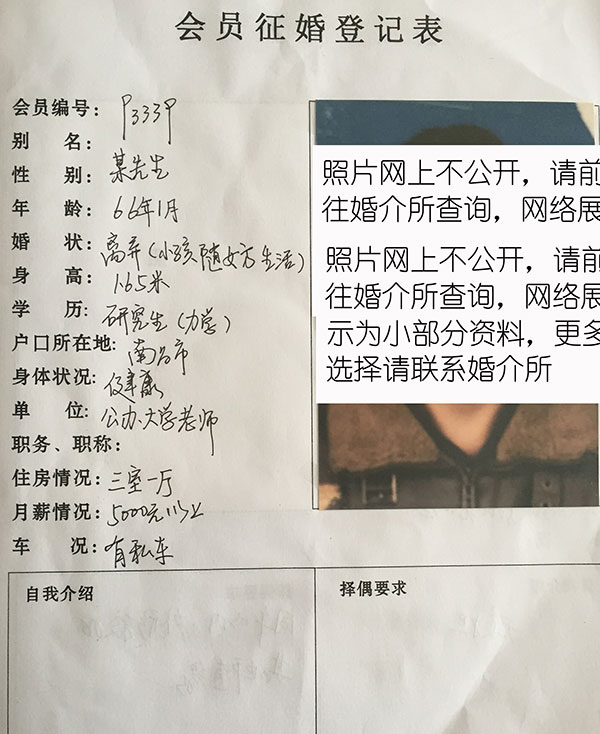 会员征婚登记表
会员编号: P333P
别 名:
性 别: 某先生
年 龄: 66年1月
婚 状: 离异(小孩随女方生活)
身 高: 1.65米
学 历: 研究生(力学)
户口所在地: 南昌市
身体状况: 健康
单 位: 公办大学老师
职务、职称:
住房情况: 三室一厅
月薪情况: 5000元以上
车 况: 有私车
照片网上不公开，请前
往婚介所查询，网络展
照片网上不公开，请前
往婚介所查询，网络展
示为小部分资料，更多
选择请联系婚介所
自我介绍
择偶要求